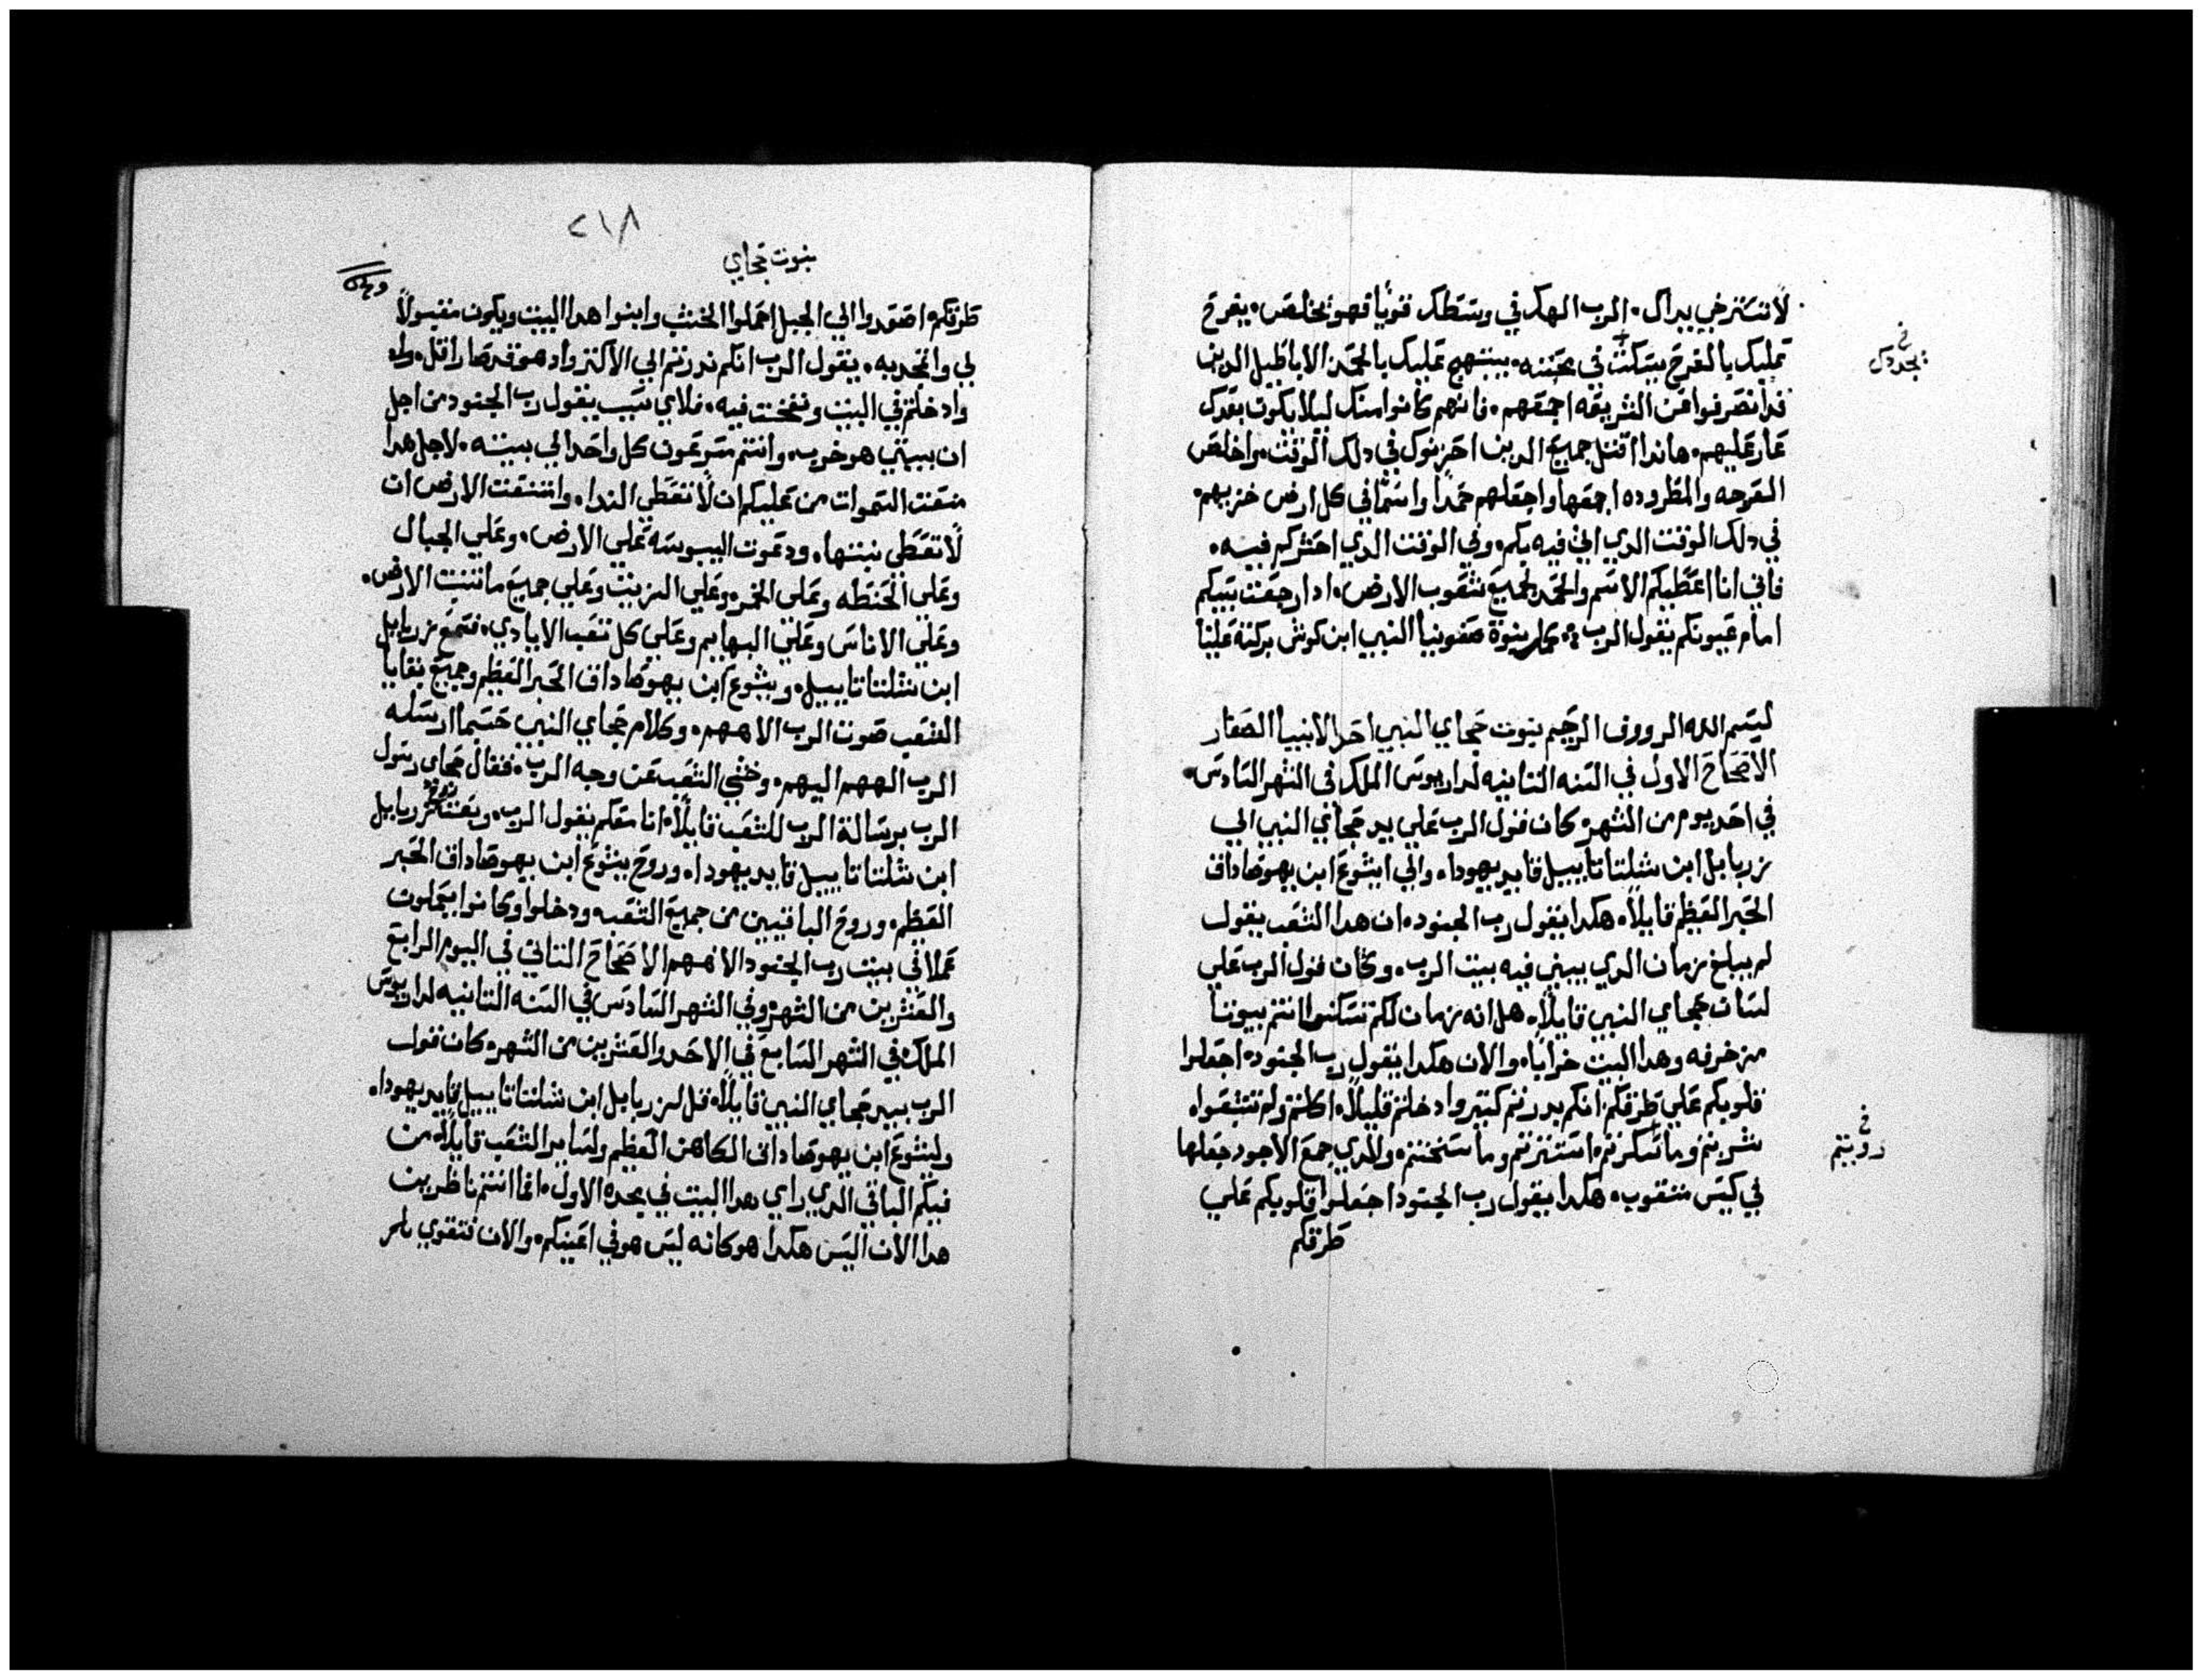 لا تسترخي يداك. الرب الهك في وسطك قويا فهو يخلص. يفرح
عليك بالفرح يسكت في محبته. يبتهج عليك بالحمد الاباطيل الدين
قد انصرفوا عن الشريعه اجمعهم. فانهم كانوا منك ليلا يكون بعدك
عار عليهم. هاندا اقتل جميع الدين احزنوك في دلك الوقت. واخلص
العرجه والمطروده اجمعها واجعلهم حمدا واسما في كل ارض خزيهم.
في دلك الوقت الدي اتي فيه بكم. وفي الوقت الدي احشركم فيه.
فاني انا اعطيكم الاسم والحمد لجميع شعوب الارض. ادا رجعت سبيكم
امام عيونكم يقول الرب كملة نبوة صفونيا النبي ابن كوش بركته علينا
بسم الله الرووف الرحيم نبوت حجاي النبي احد الانبيا الصغار
الاصحاح الاول في السنه التانيه لداريوس الملك في الشهر السادس.
في احد يوم من الشهر. كان قول الرب علي يد حجاي النبي الي
زربابل ابن شلتاتاييل قايد يهودا. والي ايشوع ابن يهوصاداق
الحبر العظيم قايلا. هكدا يقول رب الجنود. ان هدا الشعب يقول
لم يبلغ زمان الدي يبني فيه بيت الرب. وكان قول الرب علي
لسان حجاي النبي قايلا. هل انه زمان لكم تسكنوا انتم بيوتا
مزخرفه وهدا البيت خرابا. والان هكدا يقول رب الجنود. اجعلوا
قلوبكم علي طرقكم. انكم بدرتم كتير وادخلتم قليلا. اكلتم ولم تشبعوا.
شربتم وما سكرتم. استترتم وما سخنتم. والدي جمع الاجود جعلها
في كيس متقوب. هكدا يقول رب الجنود اجعلوا قلوبكم علي
طرقكم
بجددك
رويتم
٢١٨
نبوت حجاي
طرقكم. اصعدوا الي الجبل احملوا الخشب وابنوا هدا البيت ويكون مقبولا
لي واتمجد به. يقول الرب انكم ندرتم الي الاكتر واد هو قد صار اقل.
وادخلتم في البيت ونفخت فيه. فلاي سبب يقول رب الجنود من اجل
ان بيتي هو خرب. وانتم مسرعون كل واحد الي بيته. لاجل هدا
منعت السموات من عليكم ان لا تعطي الندا. وامتنعت الارض ان
لا تعطي نبتها. ودعوت اليبوسه علي الارض. وعلي الجبال
وعلي الحنطه وعلي الخمر. وعلي الزيت وعلي جميع ما تنبت الارض.
وعلي الاناس وعلي البهايم وعلي كل تعب الايادي. فسمع زربابل
ابن شلتاتاييل. ويشوع ابن يهوصاداق الحبر العظيم وجميع بقايا
الشعب صوت الرب الاههم. وكلام حجاي النبي حسبما ارسله
الرب الههم اليهم. وخشي الشعب عن وجه الرب. فقال حجاي رسول
الرب برسالة الرب للشعب قايلا. انا معكم يقول الرب. وبعت روح زربابل
ابن شلتاتاييل قايد يهودا. وروح يشوع ابن يهوصاداق الحبر
العظيم. وروح الباقيين من جميع الشعب. ودخلوا وكانوا يعملون
عملا في بيت رب الجنود الاههم الاصحاح التاني في اليوم الرابع
والعشرين من الشهر. وفي الشهر السادس في السنه التانيه لداريوس
الملك. في الشهر السابع في الاحد والعشرين من الشهر. كان قول
الرب بيد حجاي النبي قايلا. قل لزربابل ابن شلتاتاييل قايد يهودا.
وليشوع ابن يهوصاداق الكاهن العظيم ولساير الشعب قايلا. من
فيكم الباقي الدي راي هدا البيت في مجده الاول. اما انتم ناظرين
هدا الان اليس هكدا هو كانه ليس هو في اعينكم. والان فتقوي